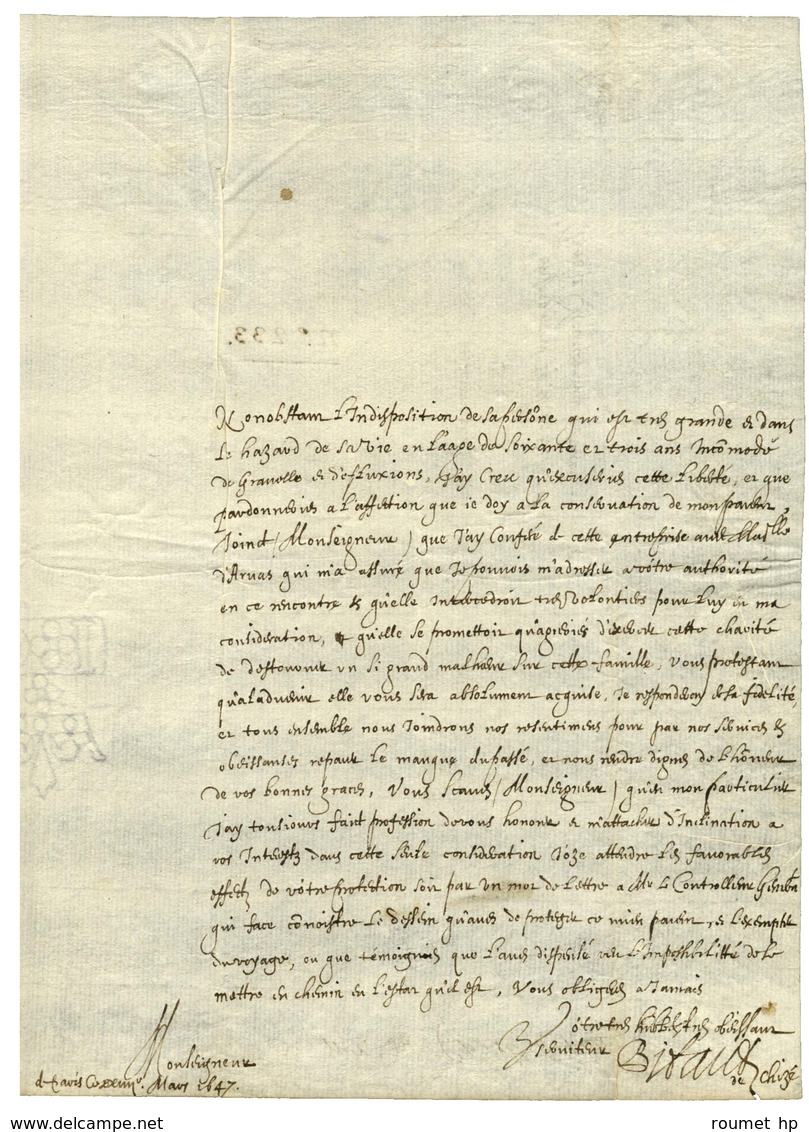 Nonobstant l'Indisposition de sa persõne qui est tres grande et dans
le hazard de sa vie en l'aage de soixante et trois ans Incõmodé
de Gravelle et defluxions, J'ay Creu qu'excuseries cette liberté, et que
pardonneries a l'affection que ie doy a la conservation de mon parent,
Joinct (Monseigneur) que J'ay Conferé de cette entreprise avec
d'Arvas qui m'a asseuré que Je pouvois m'adresser a vôtre authorité
en ce rencontre et qu'elle Intercedroit tres volontiers pour luy en ma
consideration, et qu'elle se promettoit qu'agreeries d'exercer cette charité
de destourner un si grand malheur sur cette famille, vous protestant
qu'a l'advenir elle vous sera absolument acquise, Je responderay de sa fidelité,
et tous ensemble nous Joindrons nos resentimens pour par nos services et
obeissances reparer le manque du passé, et nous rendre dignes de l'hõneur
de vos bonnes graces, Vous Scaves (Monseigneur) qu'en mon particulier
J'ay tousiours faict profession de vous honorer et m'attacher d'Inclination a
vos Interestz dans cette seule consideration J'oze attendre les favorables
effectz de vôtre protection soit par un mot de lettre a Mr le Controlleur
qui face cõnoistre le dessein qu'aves de proteger ce mien parent, et l'exempter
du voyage, ou que témoignies que l'aves dispensé veu l'Impossibilitté de le
mettre en chemin en l'estat qu'il est, Vous obligeres a Jamais
Monseigneur
Vôtre tres humble et tres obeissant
serviteur Bitault
de Chizé
de Paris Mars 1647.
n.° 233.
roumet hp